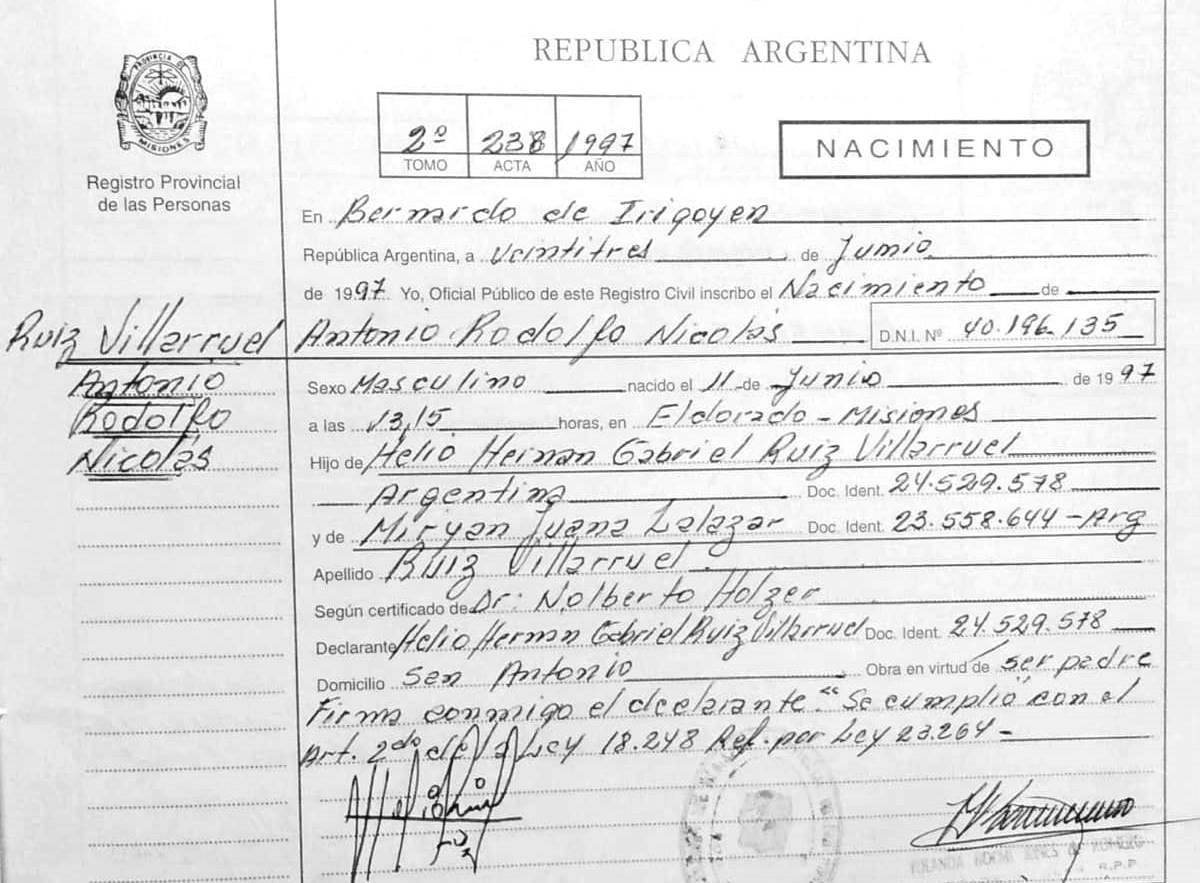 REPUBLICA ARGENTINA
PROVINCIA DE
MISIONES
Registro Provincial
de las Personas
2º 238 1997
TOMO ACTA AÑO
NACIMIENTO
En Bernardo de Irigoyen
República Argentina, a Veintitres de Junio
de 1997 Yo, Oficial Público de este Registro Civil inscribo el Nacimiento de
Ruiz Villarruel Antonio Rodolfo Nicolás D.N.I. Nº 40.196.135
Antonio
Rodolfo
Nicolás
Sexo Masculino nacido el 11 de Junio de 1997
a las 13,15 horas, en Eldorado - Misiones
Hijo de Helio Hernan Gabriel Ruiz Villarruel
Argentina Doc. Ident. 24.529.578
y de Miryan Juana Zalazar Doc. Ident. 23.558.644 - Arg
Apellido Ruiz Villarruel.
Según certificado de Dr: Nolberto Holzer
Declarante Helio Hernan Gabriel Ruiz Villarruel Doc. Ident. 24.529.578
Domicilio San Antonio Obra en virtud de ser padre
Firma conmigo el declarante. "Se cumplio" con el
Art. 2do de la Ley 18.248 Ref. por Ley 23.264 -
YOLANDA
R.P.P.